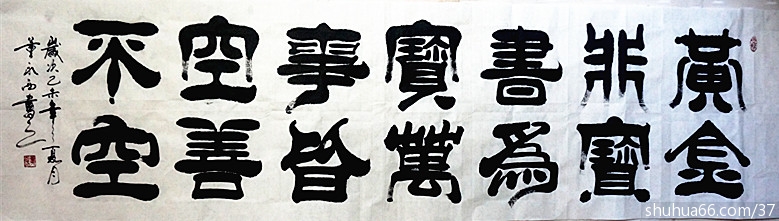 黃金
非寶
書爲
寶萬
事皆
空善
不空
歲次 未年之夏月
書之
shuhua66.com/37